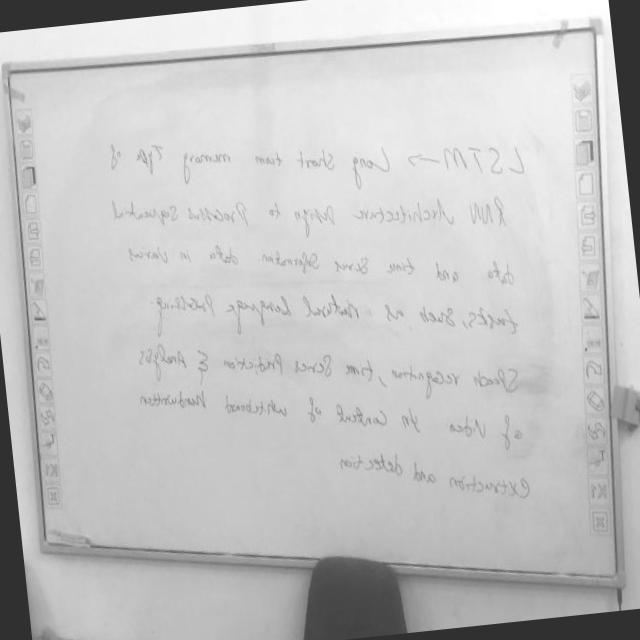 LSTM → Long Short term memory Type of
RNN Architecture Design to Process Sequential
data and time Series Information data in various
tasks, Such as natural Language Processing
Speech recognition, time Series Prediction & Analysis
of video In Context of whiteboard Handwritten
extraction and detection